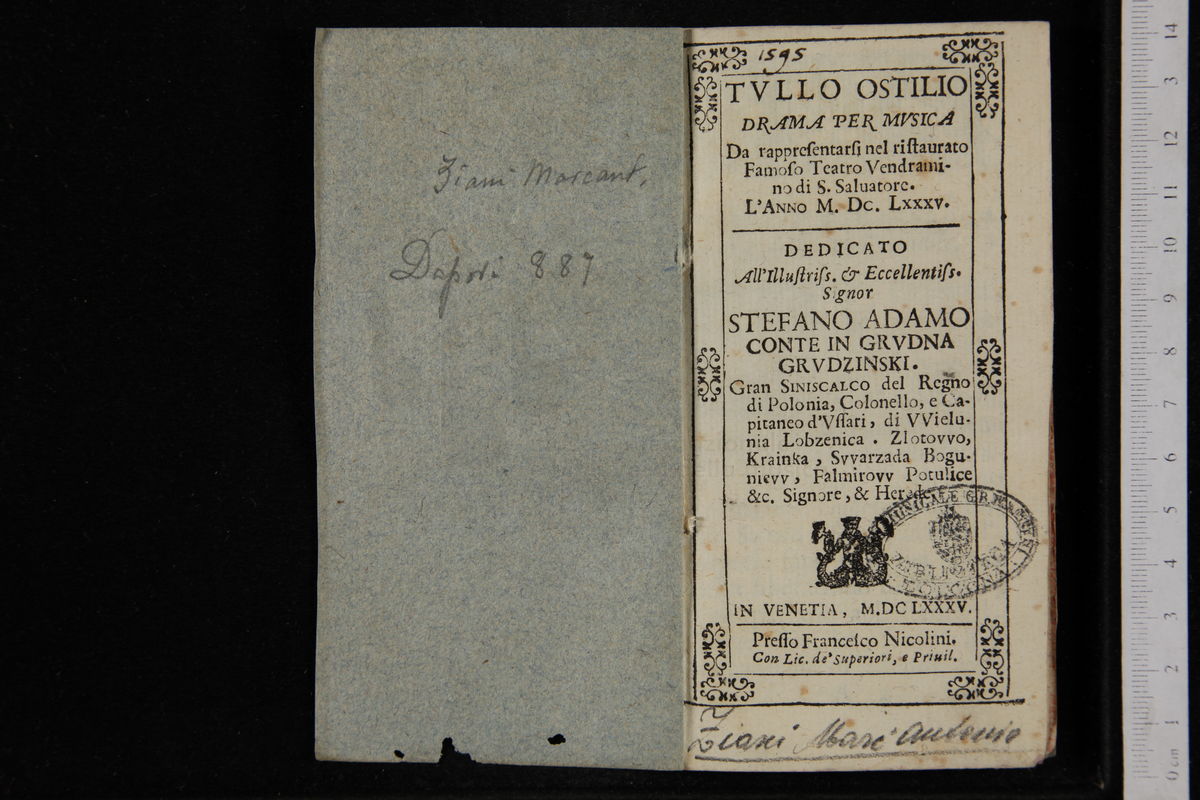 Ziani Marcant.
Dapori 887
1595
TVLLO OSTILIO
DRAMA PER MVSICA
Da rappreſentarſi nel riſtaurato
Famoſo Teatro Vendrami-
no di S. Saluatore.
L'ANNO M. DC. LXXXV.
DEDICATO
All'Illuſtriſs. & Eccellentiſs.
Signor
STEFANO ADAMO
CONTE IN GRVDNA
GRVDZINSKI.
Gran SINISCALCO del Regno
di Polonia, Colonello, e Ca-
pitaneo d'Vſſari, di VVielu-
nia Lobzenica. Zlotovvo,
Krainka, Svvarzada Bogu-
nievv, Falmirovv Potulice
&c. Signore, & Herede.
MUNICALE
BIBLIOTECA
BOLOGNA
IN VENETIA, M.DC LXXXV.
Preſſo Franceſco Nicolini.
Con Lic. de' Superiori, e Priuil.
Ziani Marc' Antonio
14
3
12
11
10
9
8
7
6
5
4
3
2
1
0 cm